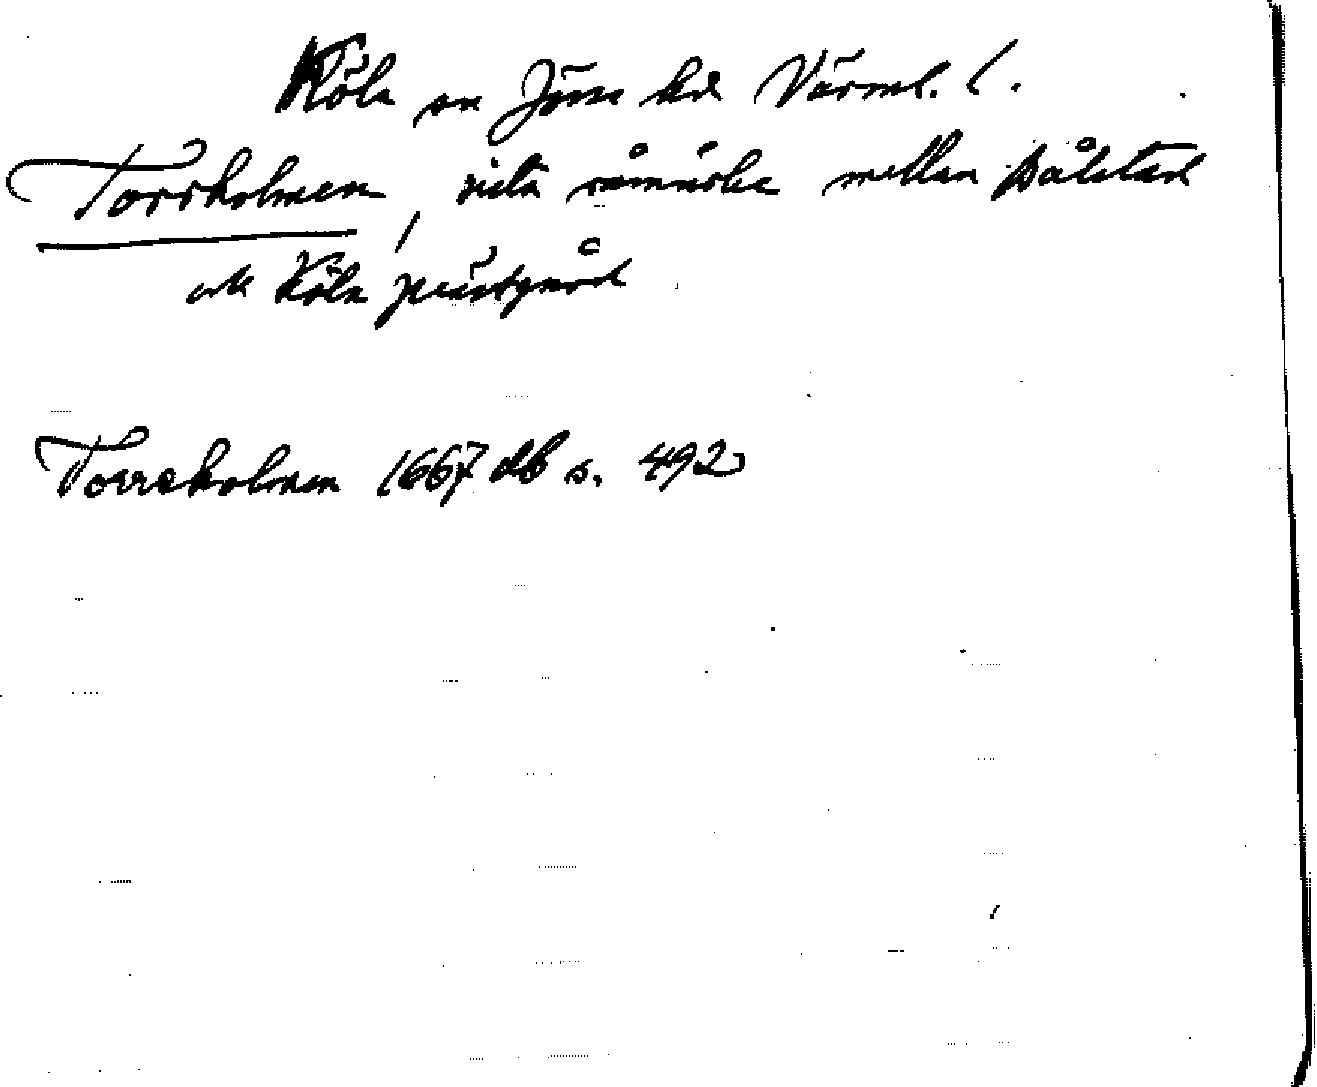 Köla sn Jösse hd Värml. l.
Torrholmen, sista råmärke mellan Bålstad
och Köla prästgård
Torreholmen 1667 db s. 492